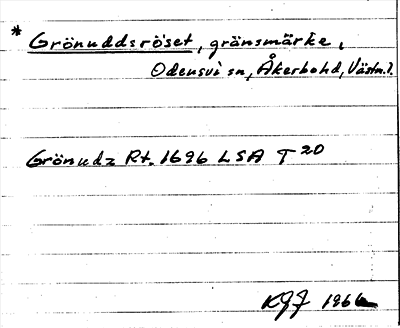 * Grönuddsröset, gränsmärke,
Odensvi sn, Åkerbohd, Västm. l.
Grönudz Rt. 1696 LSA T 20
KGJ 1966